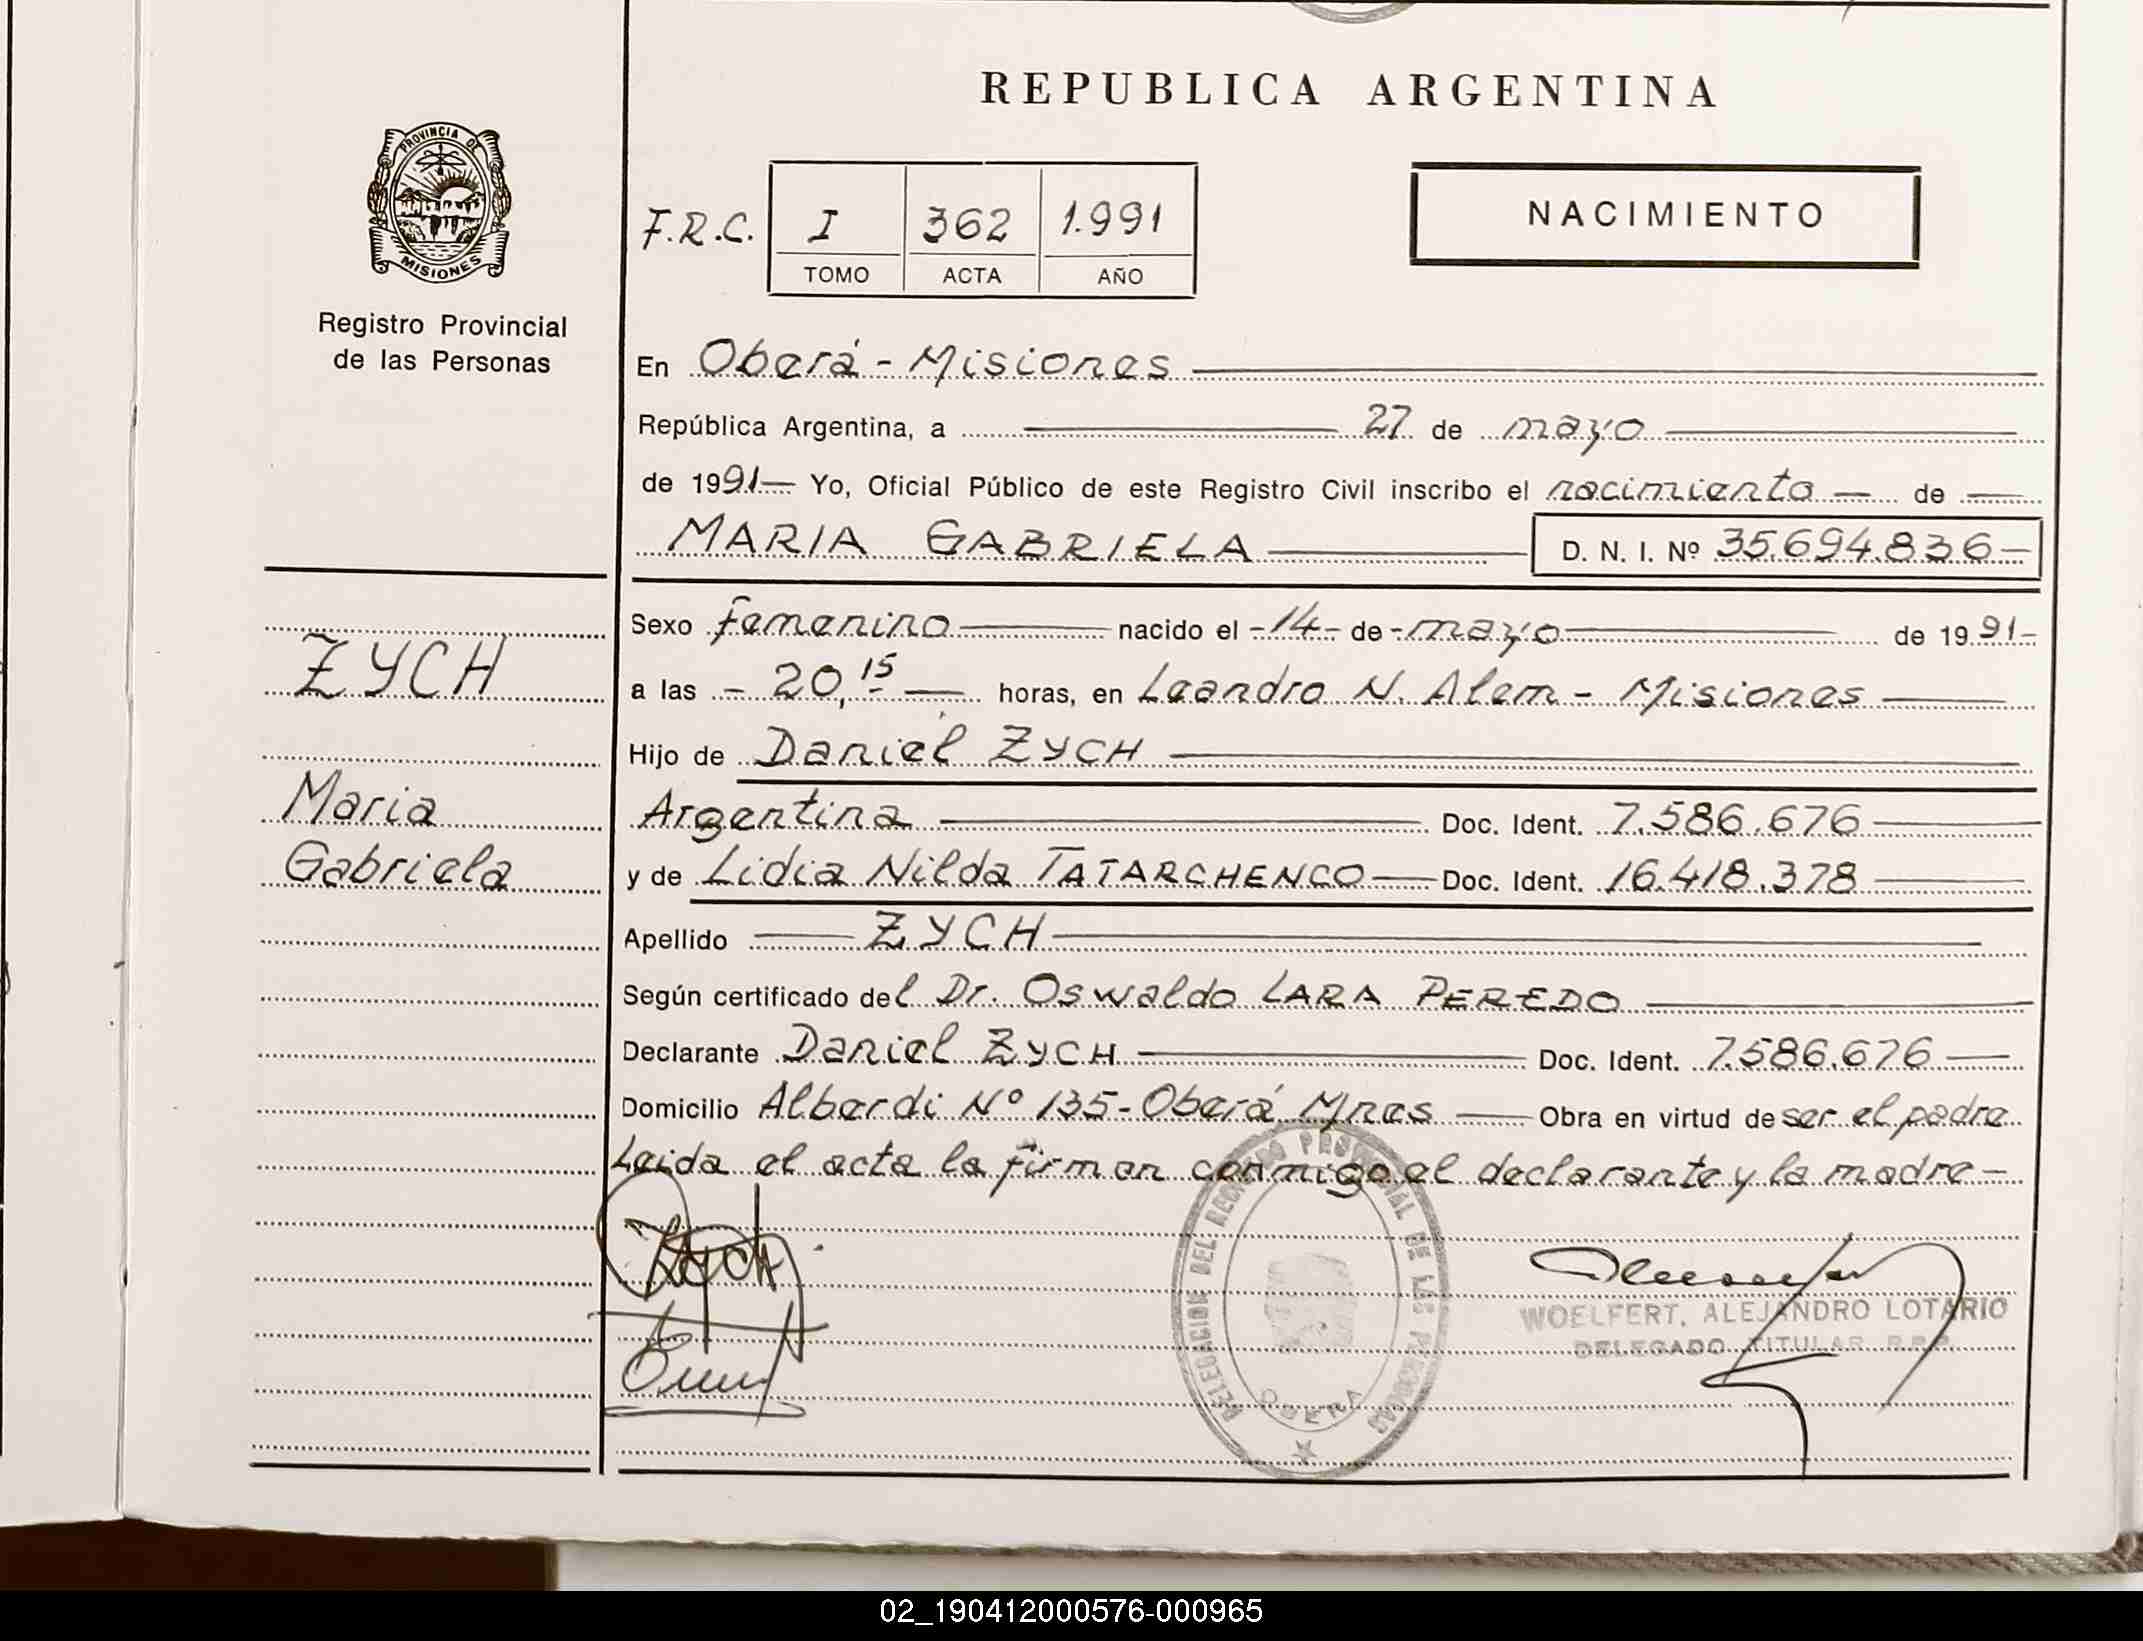 REPUBLICA ARGENTINA
PROVINCIA DE
MISIONES
Registro Provincial
de las Personas
F.R.C. I 362 1.991
TOMO ACTA AÑO
NACIMIENTO
En Oberá - Misiones
República Argentina, a 27 de mayo
de 1991 — Yo, Oficial Público de este Registro Civil inscribo el nacimiento — de —
MARIA GABRIELA D. N. I. Nº 35.694.836 —
ZYCH
Maria
Gabriela
Sexo femenino nacido el - 14 - de - mayo de 1991 -
a las - 20,15 — horas, en Leandro N. Alem - Misiones
Hijo de Daniel ZYCH
Argentina Doc. Ident. 7.586.676
y de Lidia Nilda TATARCHENCO Doc. Ident. 16.418.378
Apellido ZYCH
Según certificado del Dr. Oswaldo LARA PEREDO
Declarante Daniel ZYCH Doc. Ident. 7.586.676
Domicilio Alberdi Nº 135 - Oberá Mnes Obra en virtud de ser el padre
Leida el acta la firman conmigo el declarante y la madre -
Zych
DELEGACION DEL REGISTRO PROVINCIAL DE LAS PERSONAS
OBERA
WOELFERT, ALEJANDRO LOTARIO
DELEGADO TITULAR R.P.P.
02_190412000576-000965